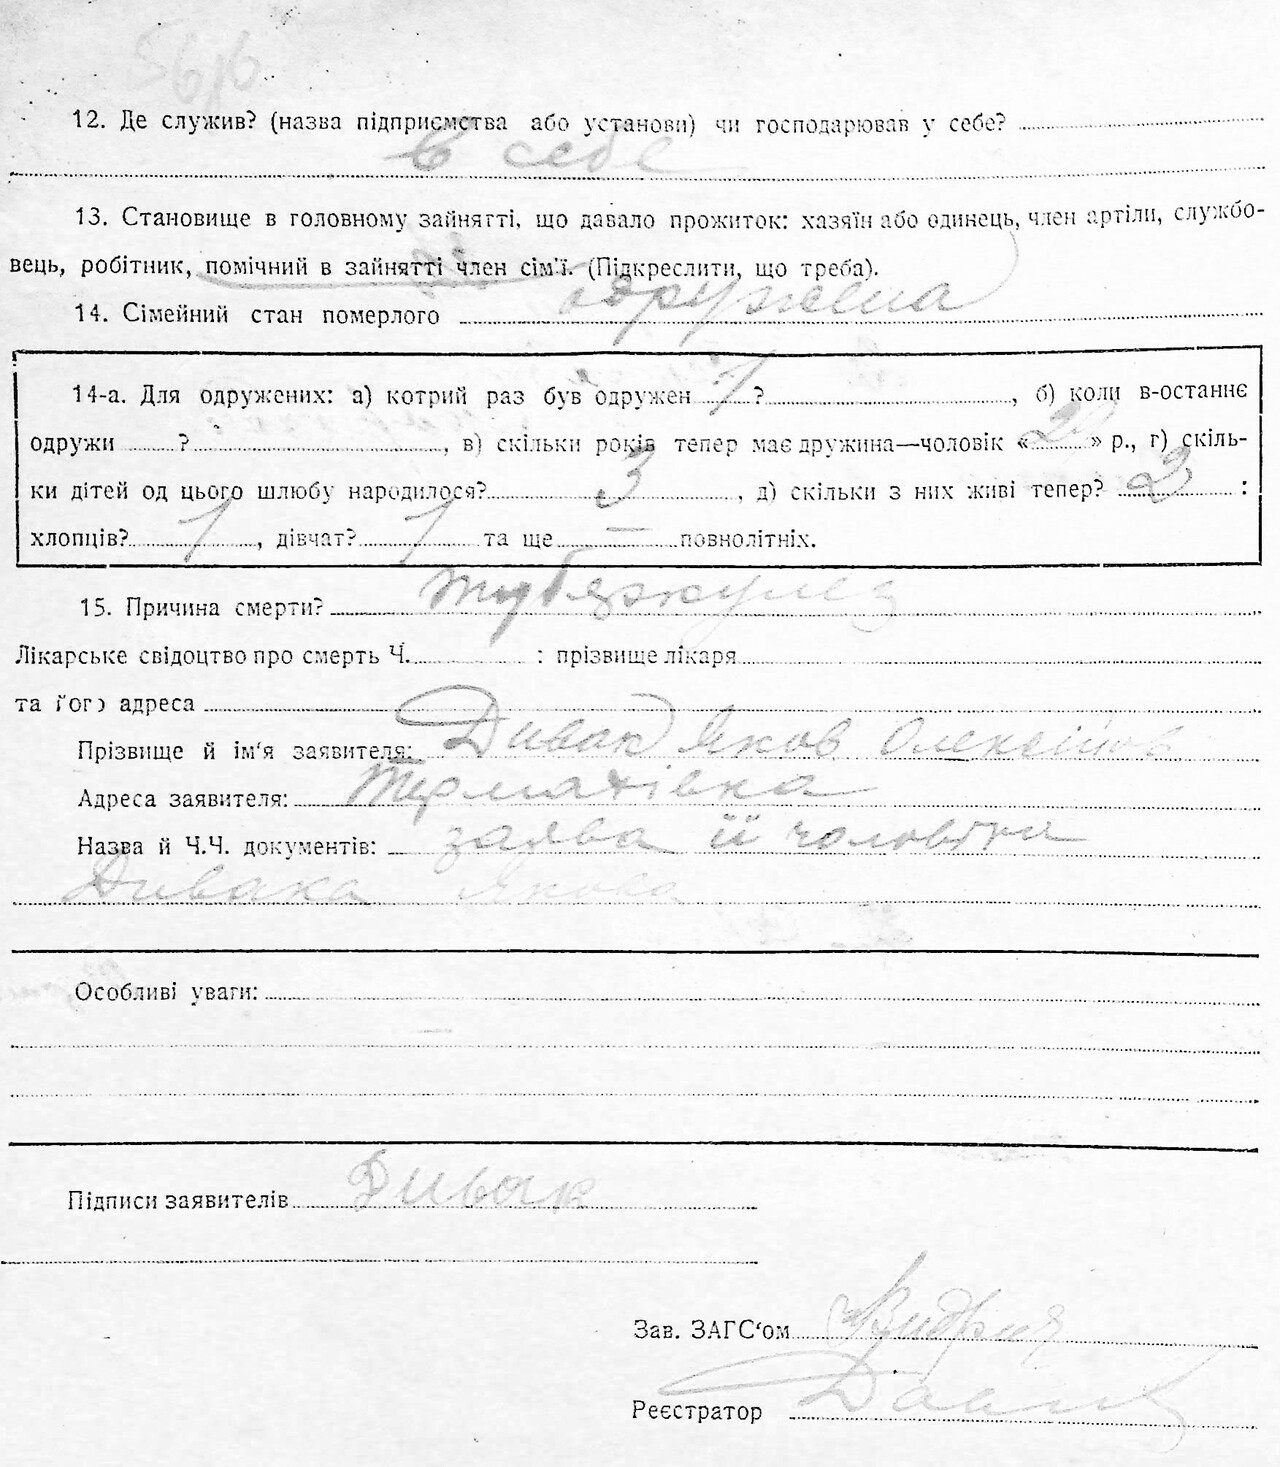 12. Де служив? (назва підприємства або установи) чи господарював у себе?
в себе
13. Становище в головному зайнятті, що давало прожиток: хазяїн або одинець, член артіли, службо-
вець, робітник, помічний в зайнятті член сім'ї. (Підкреслити, що треба).
14. Сімейний стан померлого одружена
14-а. Для одружених: а) котрий раз був одружен 1 ?, б) коли в-останнє
одружи ?, в) скільки років тепер має дружина—чоловік « » р., г) скіль-
ки дітей од цього шлюбу народилося? 3, д) скільки з них живі тепер? 2 :
хлопців? 1, дівчат? 1 та ще — повнолітніх.
15. Причина смерти? тубяркулез
Лікарське свідоцтво про смерть Ч. : прізвище лікаря
та його адреса
Прізвище й ім'я заявителя: Дивак Яков Олексійов
Адреса заявителя: Термахівка
Назва й Ч.Ч. документів: заява її чоловіка
Дивака Якова
Особливі уваги:
Підписи заявителів Дивак
Зав. ЗАГС'ом
Реєстратор